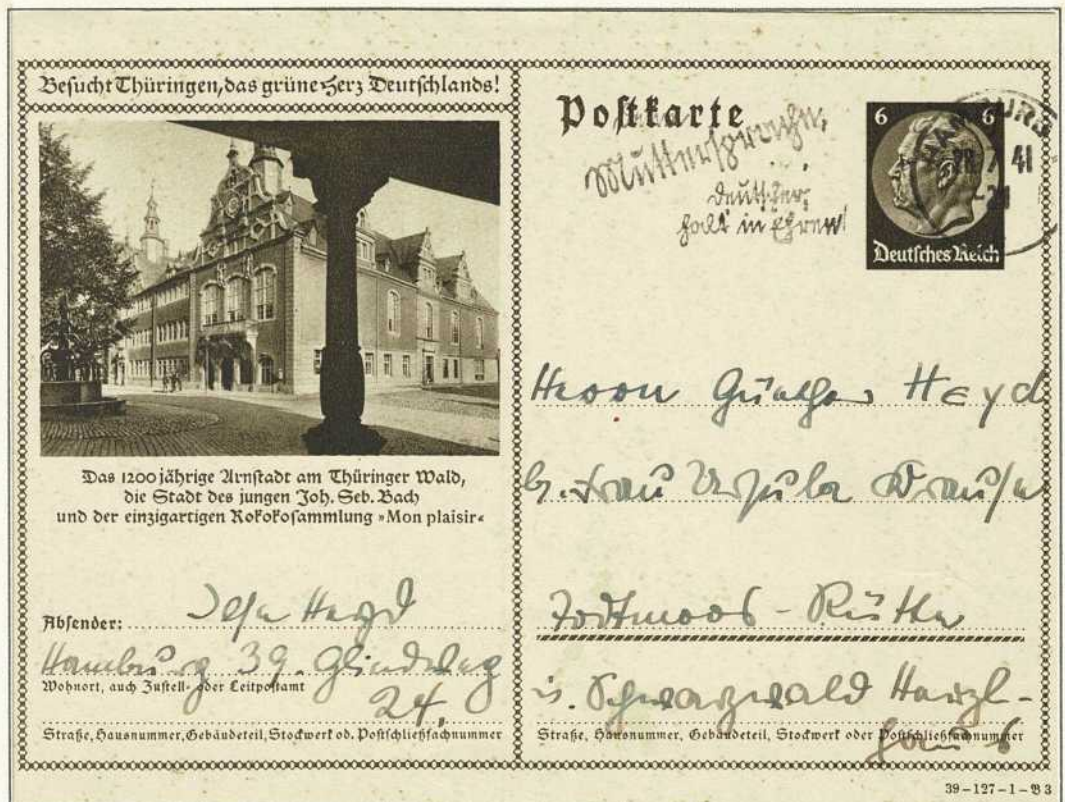 Besucht Thüringen, das grüne Herz Deutschlands!
Das 1200jährige Arnstadt am Thüringer Wald,
die Stadt des jungen Joh. Seb. Bach
und der einzigartigen Rokokosammlung »Mon plaisir«
Absender: Ilse Heyd
Hamburg 39. Glindweg
Wohnort, auch Zustell- oder Leitpostamt
24.
Straße, Hausnummer, Gebäudeteil, Stockwerk od. Postschließfachnummer
Postkarte
Muttersprache,
Deutscher,
halt in Ehren!
6 6
Deutsches Reich
HAMBURG
28.7.41
Herrn Günther Heyd
b. Frau Ursula Krause
Todtmoos-Rütte
i. Schwarzwald
Straße, Hausnummer, Gebäudeteil, Stockwerk oder Postschließfachnummer
39-127-1-B 3